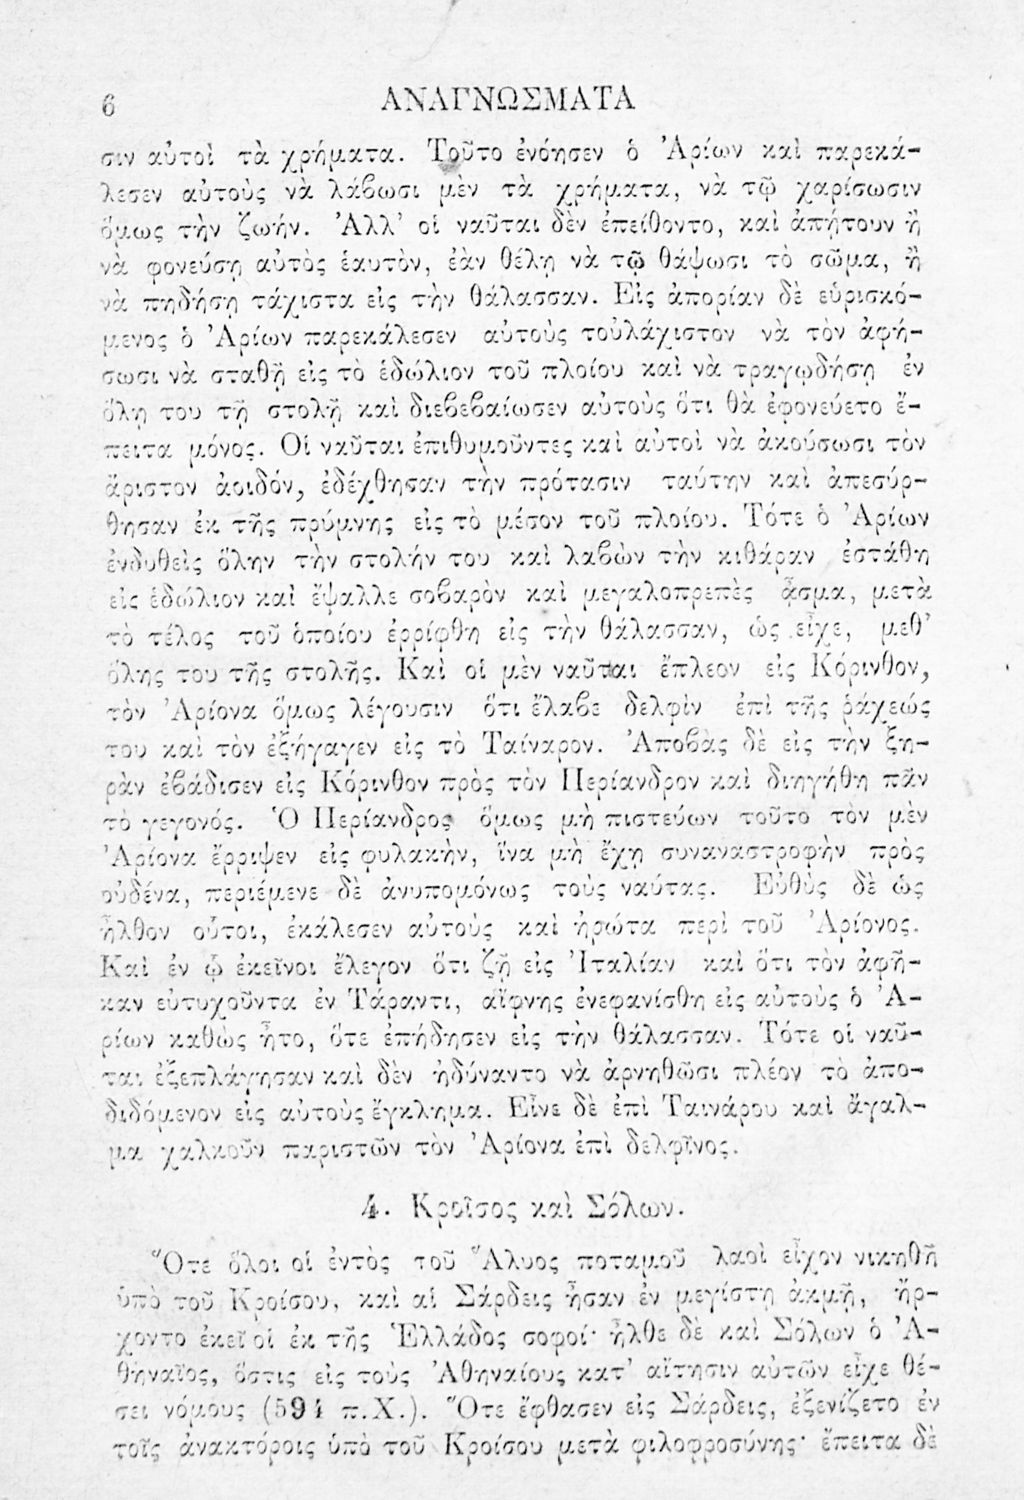 6 ΑΝΑΓΝΩΣΜΑΤΑ
σιν αὐτοὶ τὰ χρήματα. Τοῦτο ἐνόησεν ὁ Ἀρίων καὶ παρεκά-
λεσεν αὐτοὺς νὰ λάβωσι μὲν τὰ χρήματα, νὰ τῷ χαρίσωσιν
ὅμως τὴν ζωήν. Ἀλλ' οἱ ναῦται δὲν ἐπείθοντο, καὶ ἀπῄτουν ἢ
νὰ φονεύσῃ αὐτὸς ἑαυτὸν, ἐὰν θέλῃ νὰ τῷ θάψωσι τὸ σῶμα, ἢ
νὰ πηδήσῃ τάχιστα εἰς τὴν θάλασσαν. Εἰς ἀπορίαν δὲ εὑρισκό-
μενος ὁ Ἀρίων παρεκάλεσεν αὐτοὺς τοὐλάχιστον νὰ τὸν ἀφή-
σωσι νὰ σταθῇ εἰς τὸ ἑδώλιον τοῦ πλοίου καὶ νὰ τραγῳδήσῃ ἐν
ὅλῃ του τῇ στολῇ καὶ διεβεβαίωσεν αὐτοὺς ὅτι θὰ ἐφονεύετο ἔ-
πειτα μόνος. Οἱ ναῦται ἐπιθυμοῦντες καὶ αὐτοὶ νὰ ἀκούσωσι τὸν
ἄριστον ἀοιδόν, ἐδέχθησαν τὴν πρότασιν ταύτην καὶ ἀπεσύρ-
θησαν ἐκ τῆς πρύμνης εἰς τὸ μέσον τοῦ πλοίου. Τότε ὁ Ἀρίων
ἐνδυθεὶς ὅλην τὴν στολήν του καὶ λαβὼν τὴν κιθάραν ἐστάθη
εἰς ἑδώλιον καὶ ἔψαλλε σοβαρὸν καὶ μεγαλοπρεπὲς ᾆσμα, μετὰ
τὸ τέλος τοῦ ὁποίου ἐρρίφθη εἰς τὴν θάλασσαν, ὡς εἶχε, μεθ'
ὅλης του τῆς στολῆς. Καὶ οἱ μὲν ναῦται ἔπλεον εἰς Κόρινθον,
τὸν Ἀρίονα ὅμως λέγουσιν ὅτι ἔλαβε δελφὶν ἐπὶ τῆς ῥάχεώς
του καὶ τὸν ἐξήγαγεν εἰς τὸ Ταίναρον. Ἀποβὰς δὲ εἰς τὴν ξη-
ρὰν ἐβάδισεν εἰς Κόρινθον πρὸς τὸν Περίανδρον καὶ διηγήθη πᾶν
τὸ γεγονός. Ὁ Περίανδρος ὅμως μὴ πιστεύων τοῦτο τὸν μὲν
Ἀρίονα ἔρριψεν εἰς φυλακὴν, ἵνα μὴ ἔχῃ συναναστροφὴν πρὸς
οὐδένα, περιέμενε δὲ ἀνυπομόνως τοὺς ναύτας. Εὐθὺς δὲ ὡς
ἦλθον οὗτοι, ἐκάλεσεν αὐτοὺς καὶ ἠρώτα περὶ τοῦ Ἀρίονος.
Καὶ ἐν ᾧ ἐκεῖνοι ἔλεγον ὅτι ζῇ εἰς Ἰταλίαν καὶ ὅτι τὸν ἀφῆ-
καν εὐτυχοῦντα ἐν Τάραντι, αἴφνης ἐνεφανίσθη εἰς αὐτοὺς ὁ Ἀ-
ρίων καθὼς ἦτο, ὅτε ἐπήδησεν εἰς τὴν θάλασσαν. Τότε οἱ ναῦ-
ται ἐξεπλάγησαν καὶ δὲν ἠδύναντο νὰ ἀρνηθῶσι πλέον τὸ ἀπο-
διδόμενον εἰς αὐτοὺς ἔγκλημα. Εἶνε δὲ ἐπὶ Ταινάρου καὶ ἄγαλ-
μα χαλκοῦν παριστῶν τὸν Ἀρίονα ἐπὶ δελφῖνος.
4. Κροῖσος καὶ Σόλων.
Ὅτε ὅλοι οἱ ἐντὸς τοῦ Ἅλυος ποταμοῦ λαοὶ εἶχον νικηθῆ
ὑπὸ τοῦ Κροίσου, καὶ αἱ Σάρδεις ἦσαν ἐν μεγίστῃ ἀκμῇ, ἤρ-
χοντο ἐκεῖ οἱ ἐκ τῆς Ἑλλάδος σοφοί· ἦλθε δὲ καὶ Σόλων ὁ Ἀ-
θηναῖος, ὅστις εἰς τοὺς Ἀθηναίους κατ' αἴτησιν αὐτῶν εἶχε θέ-
σει νόμους (594 π.Χ.). Ὅτε ἔφθασεν εἰς Σάρδεις, ἐξενίζετο ἐν
τοῖς ἀνακτόροις ὑπὸ τοῦ Κροίσου μετὰ φιλοφροσύνης· ἔπειτα δὲ